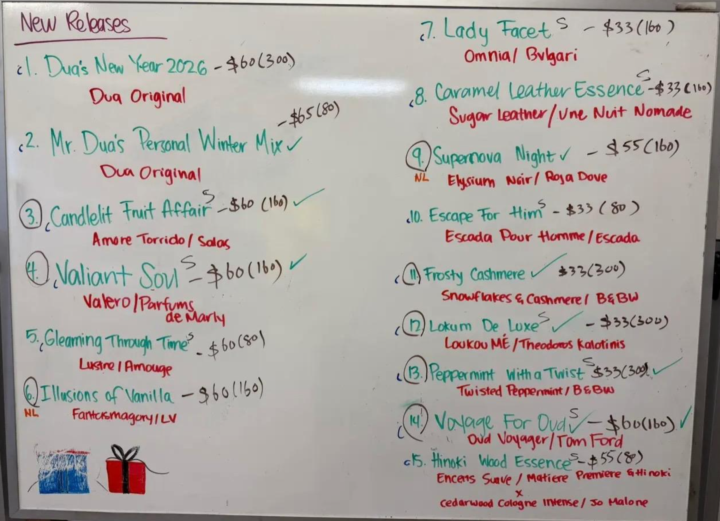 New Releases
1. Dua's New Year 2026 - $60(300)
Dua Original
- $65(80)
2. Mr. Dua's Personal Winter Mix ✓
Dua Original
3. Candlelit Fruit Affair S - $60 (160) ✓
Amore Torrido/Salas
4. Valiant Soul S - $60(160) ✓
Valero/Parfums
de Marly
5. Gleaming Through Time S - $60(80)
Lustre/Amouge
6. Illusions of Vanilla - $60(160)
NL Fantasmagory/LV
7. Lady Facet S - $33(160)
Omnia/Bvlgari
8. Caramel Leather Essence S - $33(160)
Sugar Leather/Une Nuit Nomade
9. Supernova Night ✓ - $55(160)
NL Elysium Noir/Roja Dove
10. Escape For Him S - $33 (80)
Escada Pour Homme/Escada
11. Frosty Cashmere ✓ $33(300)
Snowflakes & Cashmere/B&BW
12. Lokum De Luxe S ✓ - $33(300)
Loukou MÉ/Theodoros Kalotinis
13. Peppermint With a Twist S $33(300) ✓
Twisted Peppermint/B&BW
14. Voyage For Oud S ✓ - $60(160) ✓
Oud Voyager/Tom Ford
15. Hinoki Wood Essence S - $55(80)
Encens Suave/Matiere Premiere & Hinoki
x
Cedarwood Cologne Intense/Jo Malone